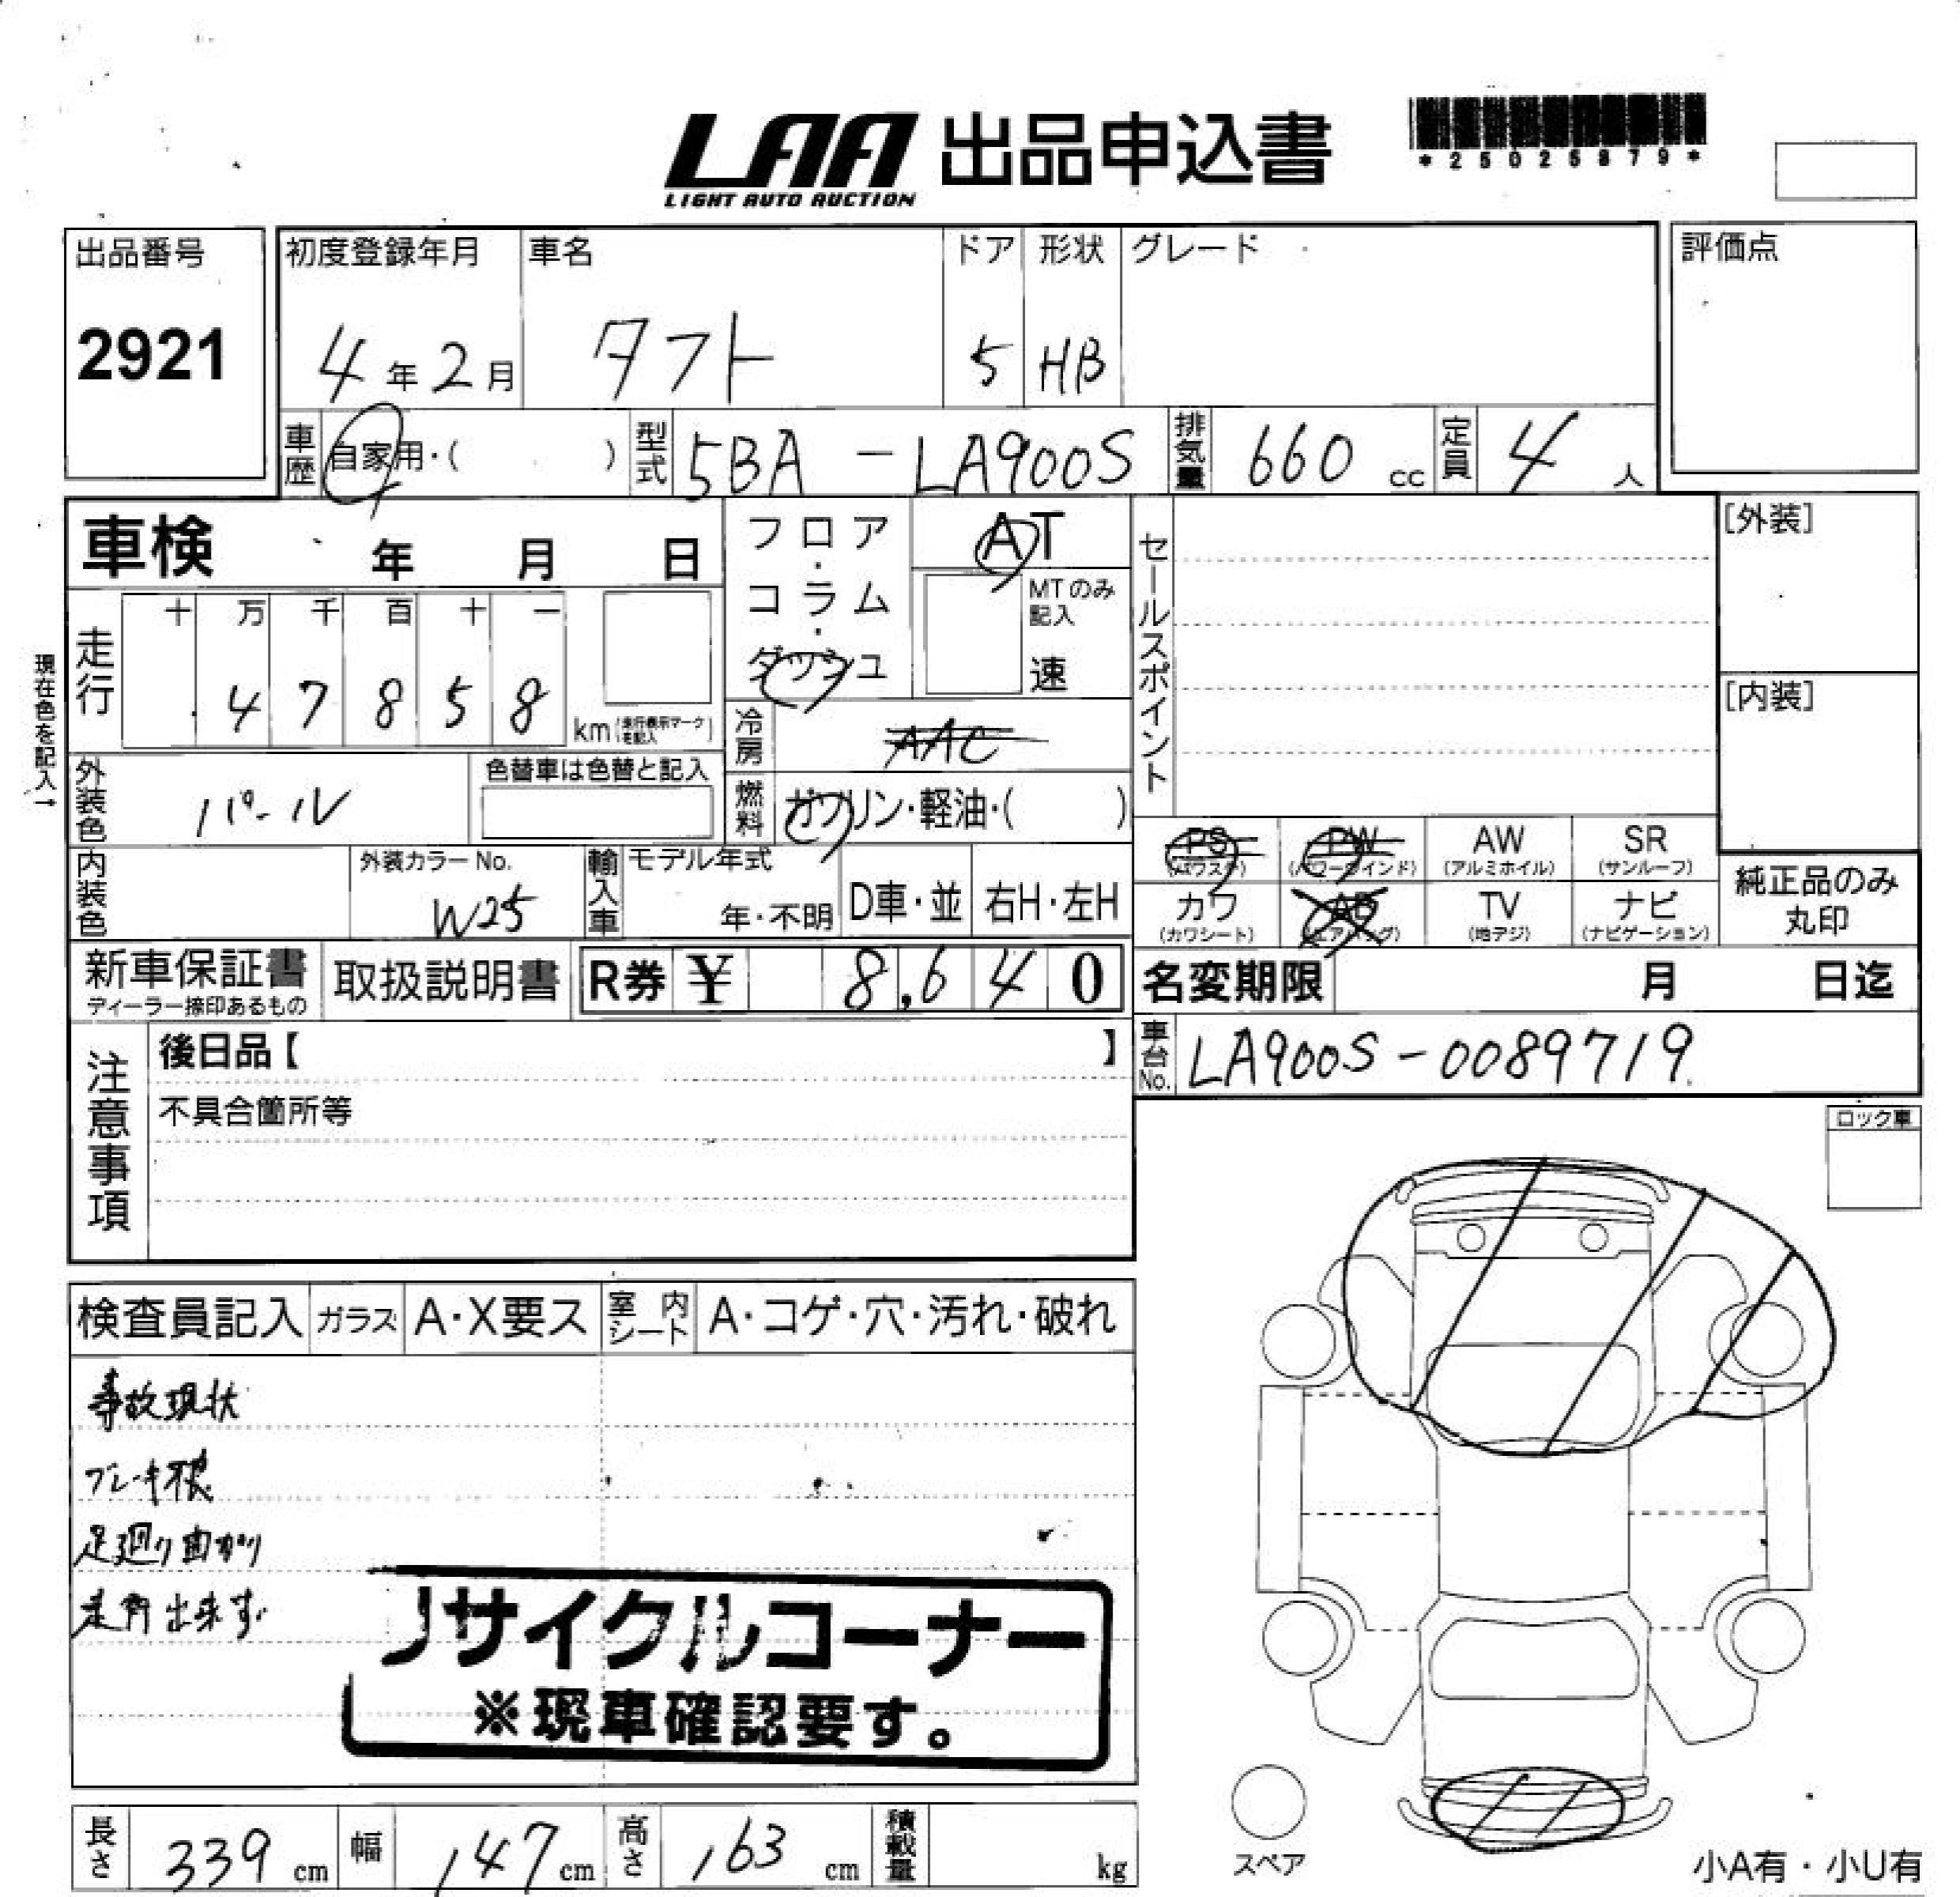 LAA 出品申込書
LIGHT AUTO AUCTION
*25025879*
出品番号
2921
初度登録年月 車名 ドア 形状 グレード 評価点
4年2月 タフト 5 HB
車歴 自家用・( ) 型式 5BA-LA900S 排気量 660 cc 定員 4人
車検 年 月 日
フロア・コラム・ダッシュ
AT
MTのみ記入
速
セールスポイント
[外装]
[内装]
現在色を記入→
走行 十 万 千 百 十 一
4 7 8 5 8 km (走行表示マークを記入)
冷房 AAC
外装色 パール 色替車は色替と記入
燃料 ガソリン・軽油・( )
PS (パワステ) PW (パワーウインド) AW (アルミホイル) SR (サンルーフ)
カワ (カワシート) AB (エアバッグ) TV (地デジ) ナビ (ナビゲーション)
純正品のみ丸印
内装色 外装カラーNo. W25
輸入車 モデル年式 年・不明 D車・並 右H・左H
新車保証書 ディーラー捺印あるもの 取扱説明書 R券 ¥ 8,640
名変期限 月 日迄
車台No. LA900S-0089719
注意事項
後日品【 】
不具合箇所等
ロック車
検査員記入 ガラス A・X要ス 室内シート A・コゲ・穴・汚れ・破れ
事故現状
ブレーキ不良
足廻り曲がり
走行出来ず
リサイクルコーナー
※現車確認要す。
長さ 339 cm 幅 147 cm 高さ 163 cm 積載量 kg
スペア
小A有・小U有